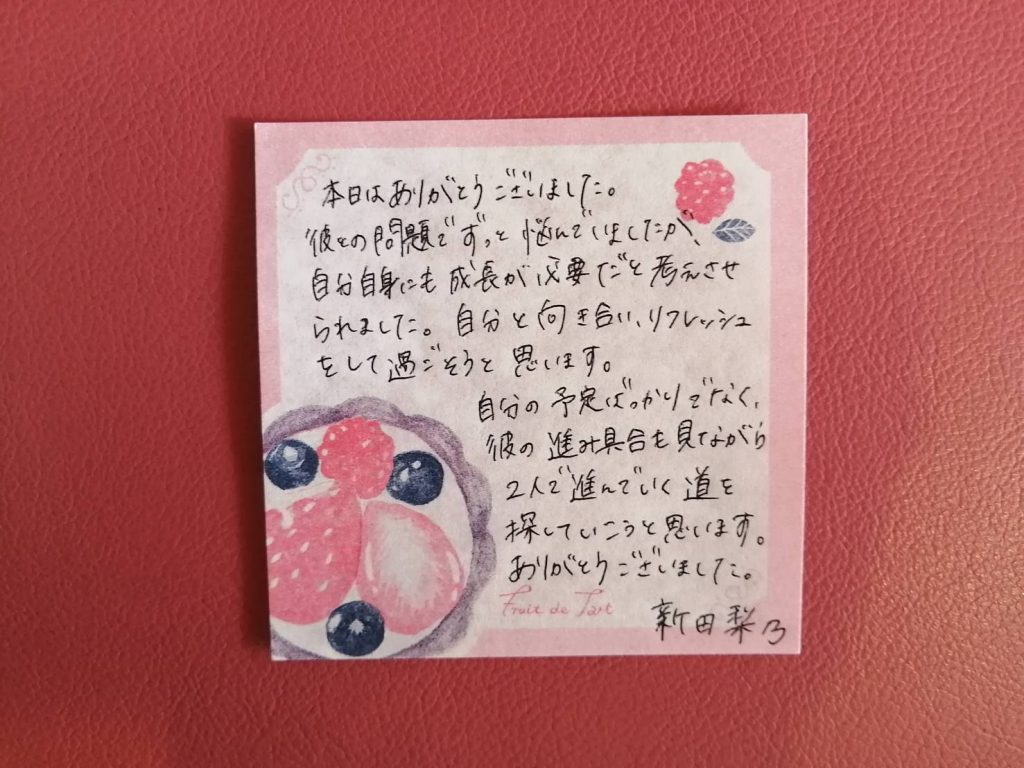 本日はありがとうございました。
彼との問題でずっと悩んでいましたが、
自分自身にも成長が必要だと考えさせ
られました。自分と向き合い、リフレッシュ
をして過ごそうと思います。
自分の予定ばっかりでなく、
彼の進み具合も見ながら
2人で進んでいく道を
探していこうと思います。
ありがとうございました。
Fruit de Tart
新田梨乃